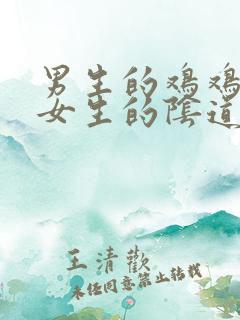 男生的鸡鸡
女生的陰道
王清歡
未经同意禁止转载